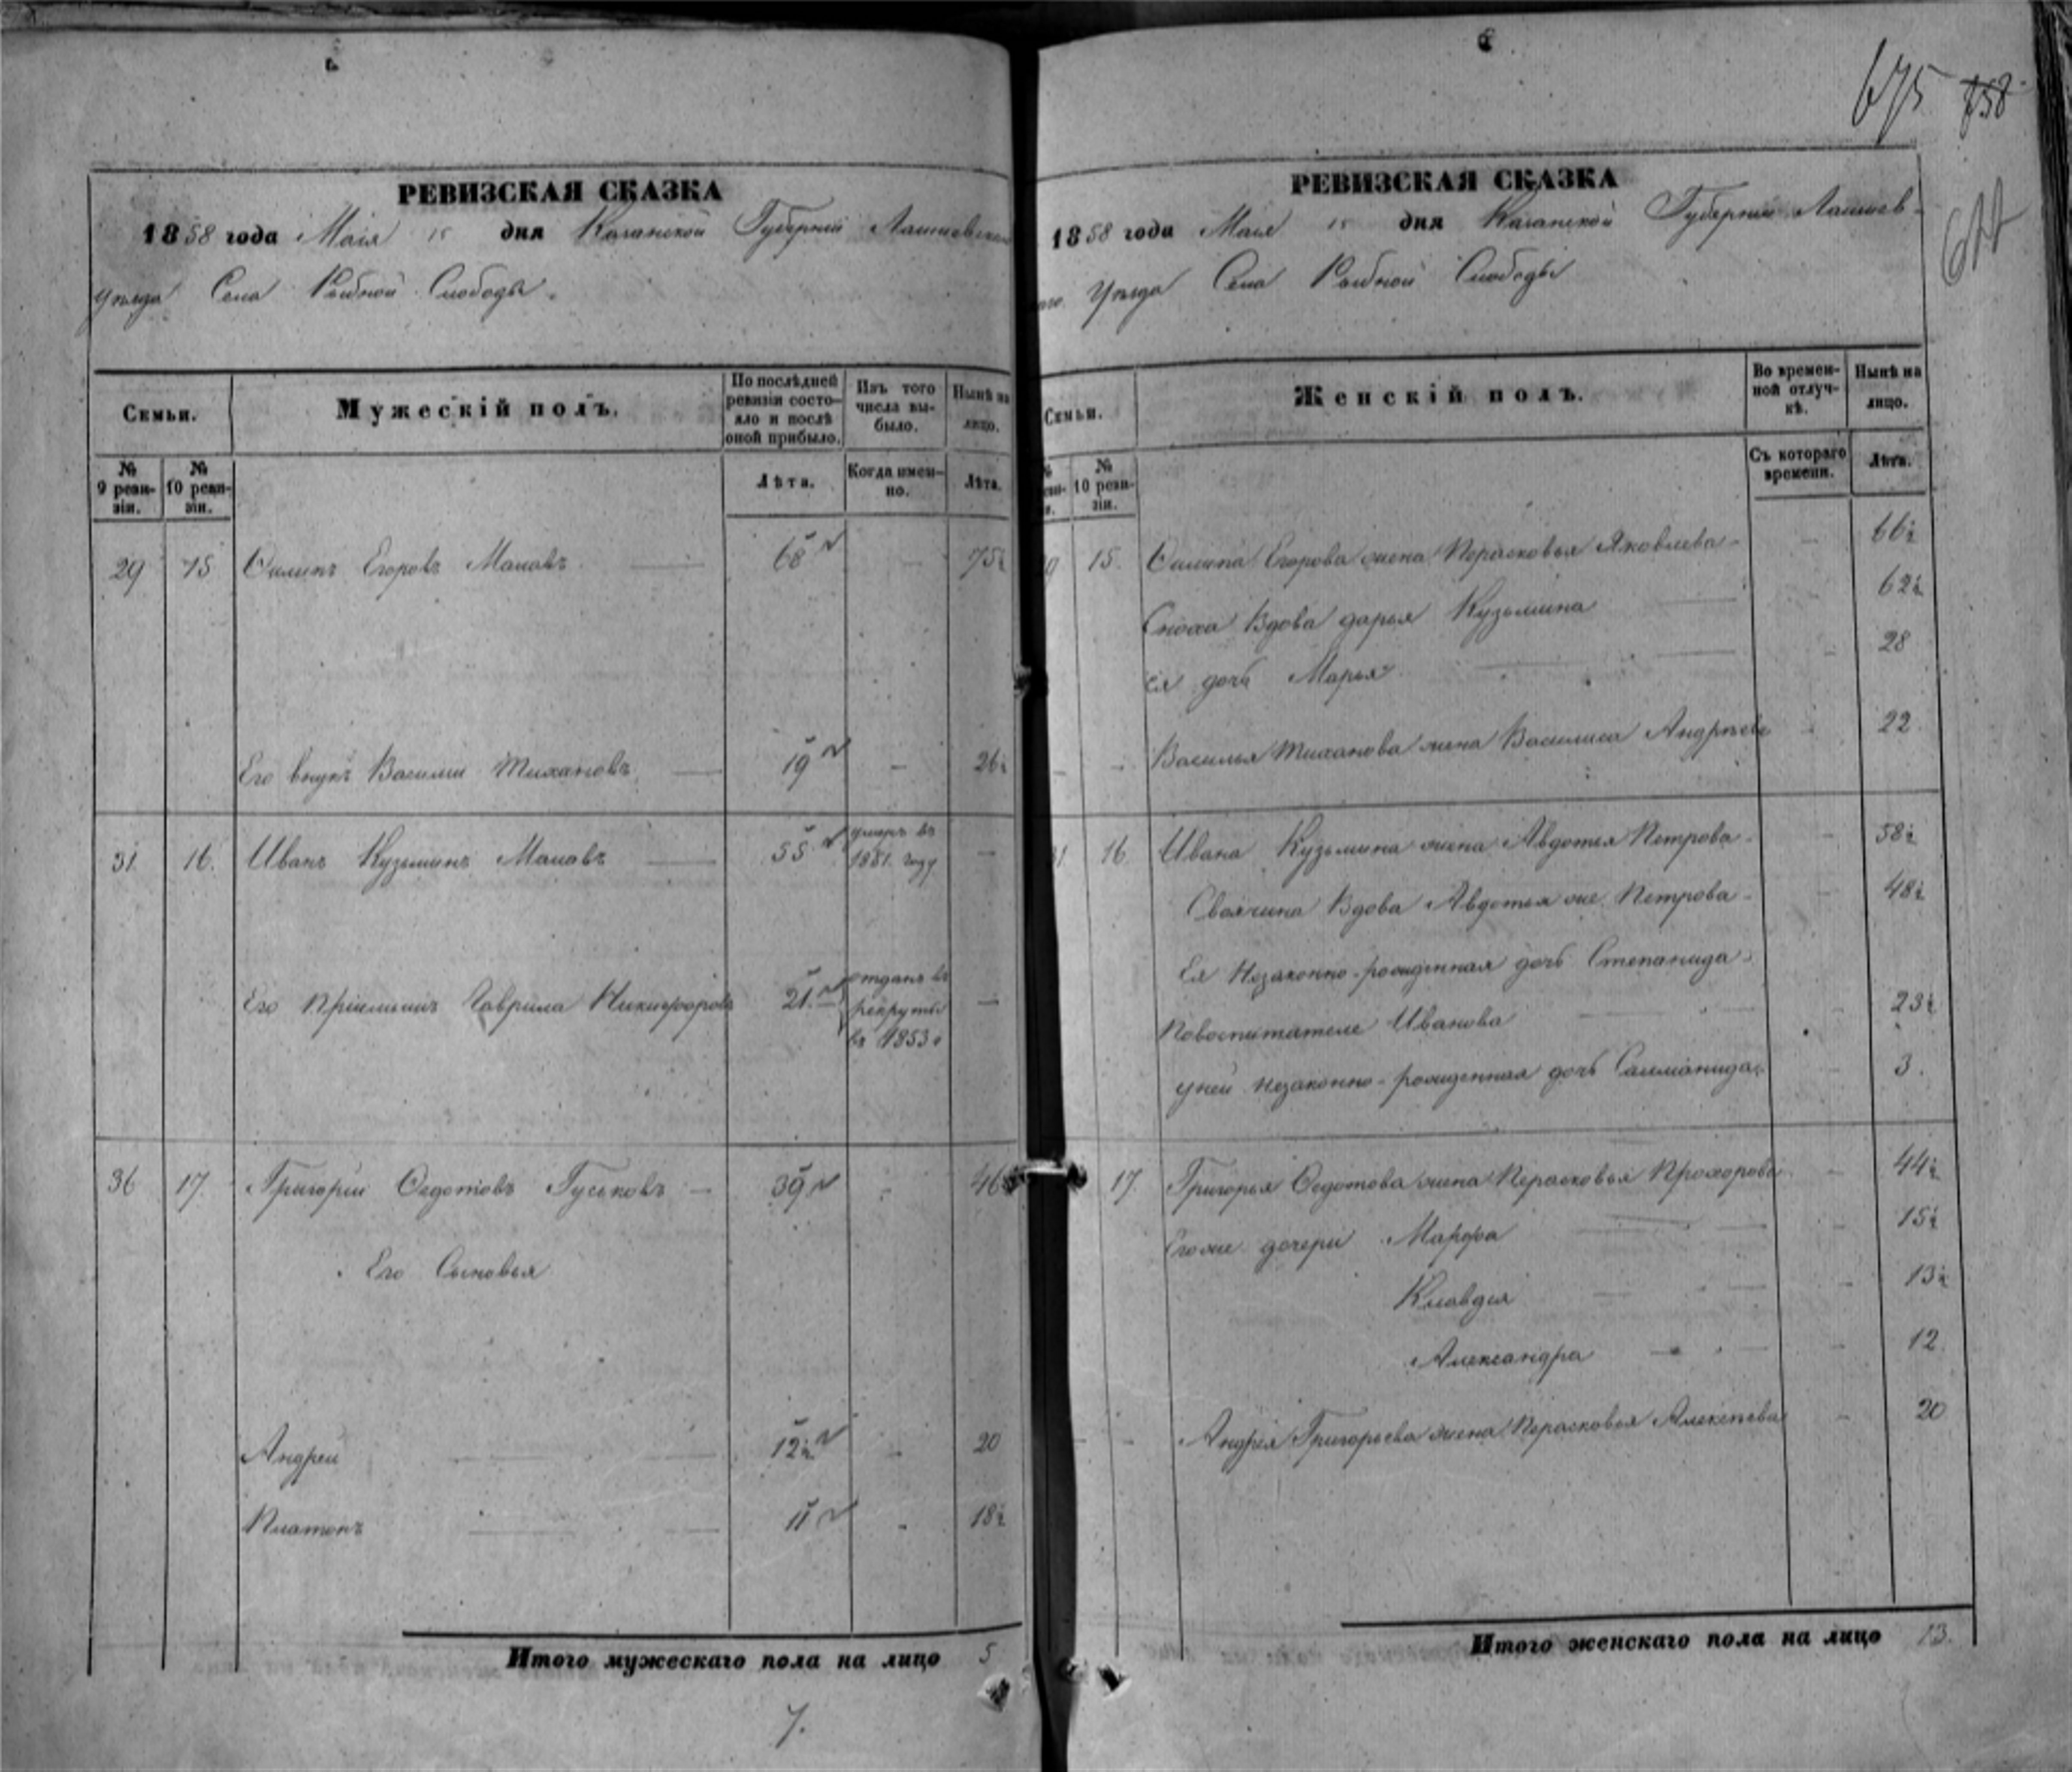 675 758
677
РЕВИЗСКАЯ СКАЗКА
1858 года Маiя 15 дня Казанской Губернiи Лаишевскаго
Уѣзда Села Рыбной Слободы.
Семьи.
Мужескiй полъ.
По послѣдней ревизiи состояло и послѣ оной прибыло.
Изъ того числа выбыло.
Нынѣ на лицо.
№ 9 ревизiи.
№ 10 ревизiи.
Лѣта.
Когда именно.
Лѣта.
29 15 Филипъ Егоровъ Маловъ 68 — 75½
Его внукъ Василiй Тихановъ 19 — 26½
31. 16. Иванъ Кузьминъ Маловъ 55 умеръ въ —
1851. году
Его прiемышъ Гаврила Никифоровъ 21. отданъ въ —
рекруты
въ 1853 г
36 17. Григорiй Федотовъ Гуськовъ — 39 - 46½
Его Сыновья
Андрей 12½ - 20
Платонъ 11 - 18½
Итого мужескаго пола на лицо 5
7.
РЕВИЗСКАЯ СКАЗКА
1858 года Маiя 15 дня Казанской Губернiи Лаишев-
скаго. Уѣзда Села Рыбной Слободы
Семьи.
Женскiй полъ.
Во временной отлучкѣ.
Нынѣ на лицо.
№ 10 ревизiи.
Съ котораго времени.
Лѣта.
29 15. Филипа Егорова жена Перасковья Яковлева — 66½
Сноха Вдова дарья Кузьмина 62½
Ея дочь Марья 28
Василья Тиханова жена Василиса Андрѣева 22.
31. 16. Ивана Кузьмина жена Авдотья Петрова 58½
Своячина Вдова Авдотья же Петрова 48½
Ея Незаконно-рожденная дочь Степанида
Повоспитателе Иванова 23½
уней незаконно-рожденная дочь 3.
17. Григорья Федотова жена Перасковья Прохорова 44½
Егоже дочери Марфа 15½
Клавдия 13½
Александра 12.
Андрея Григорьева жена Перасковья Алексѣева 20
Итого женскаго пола на лицо 13.